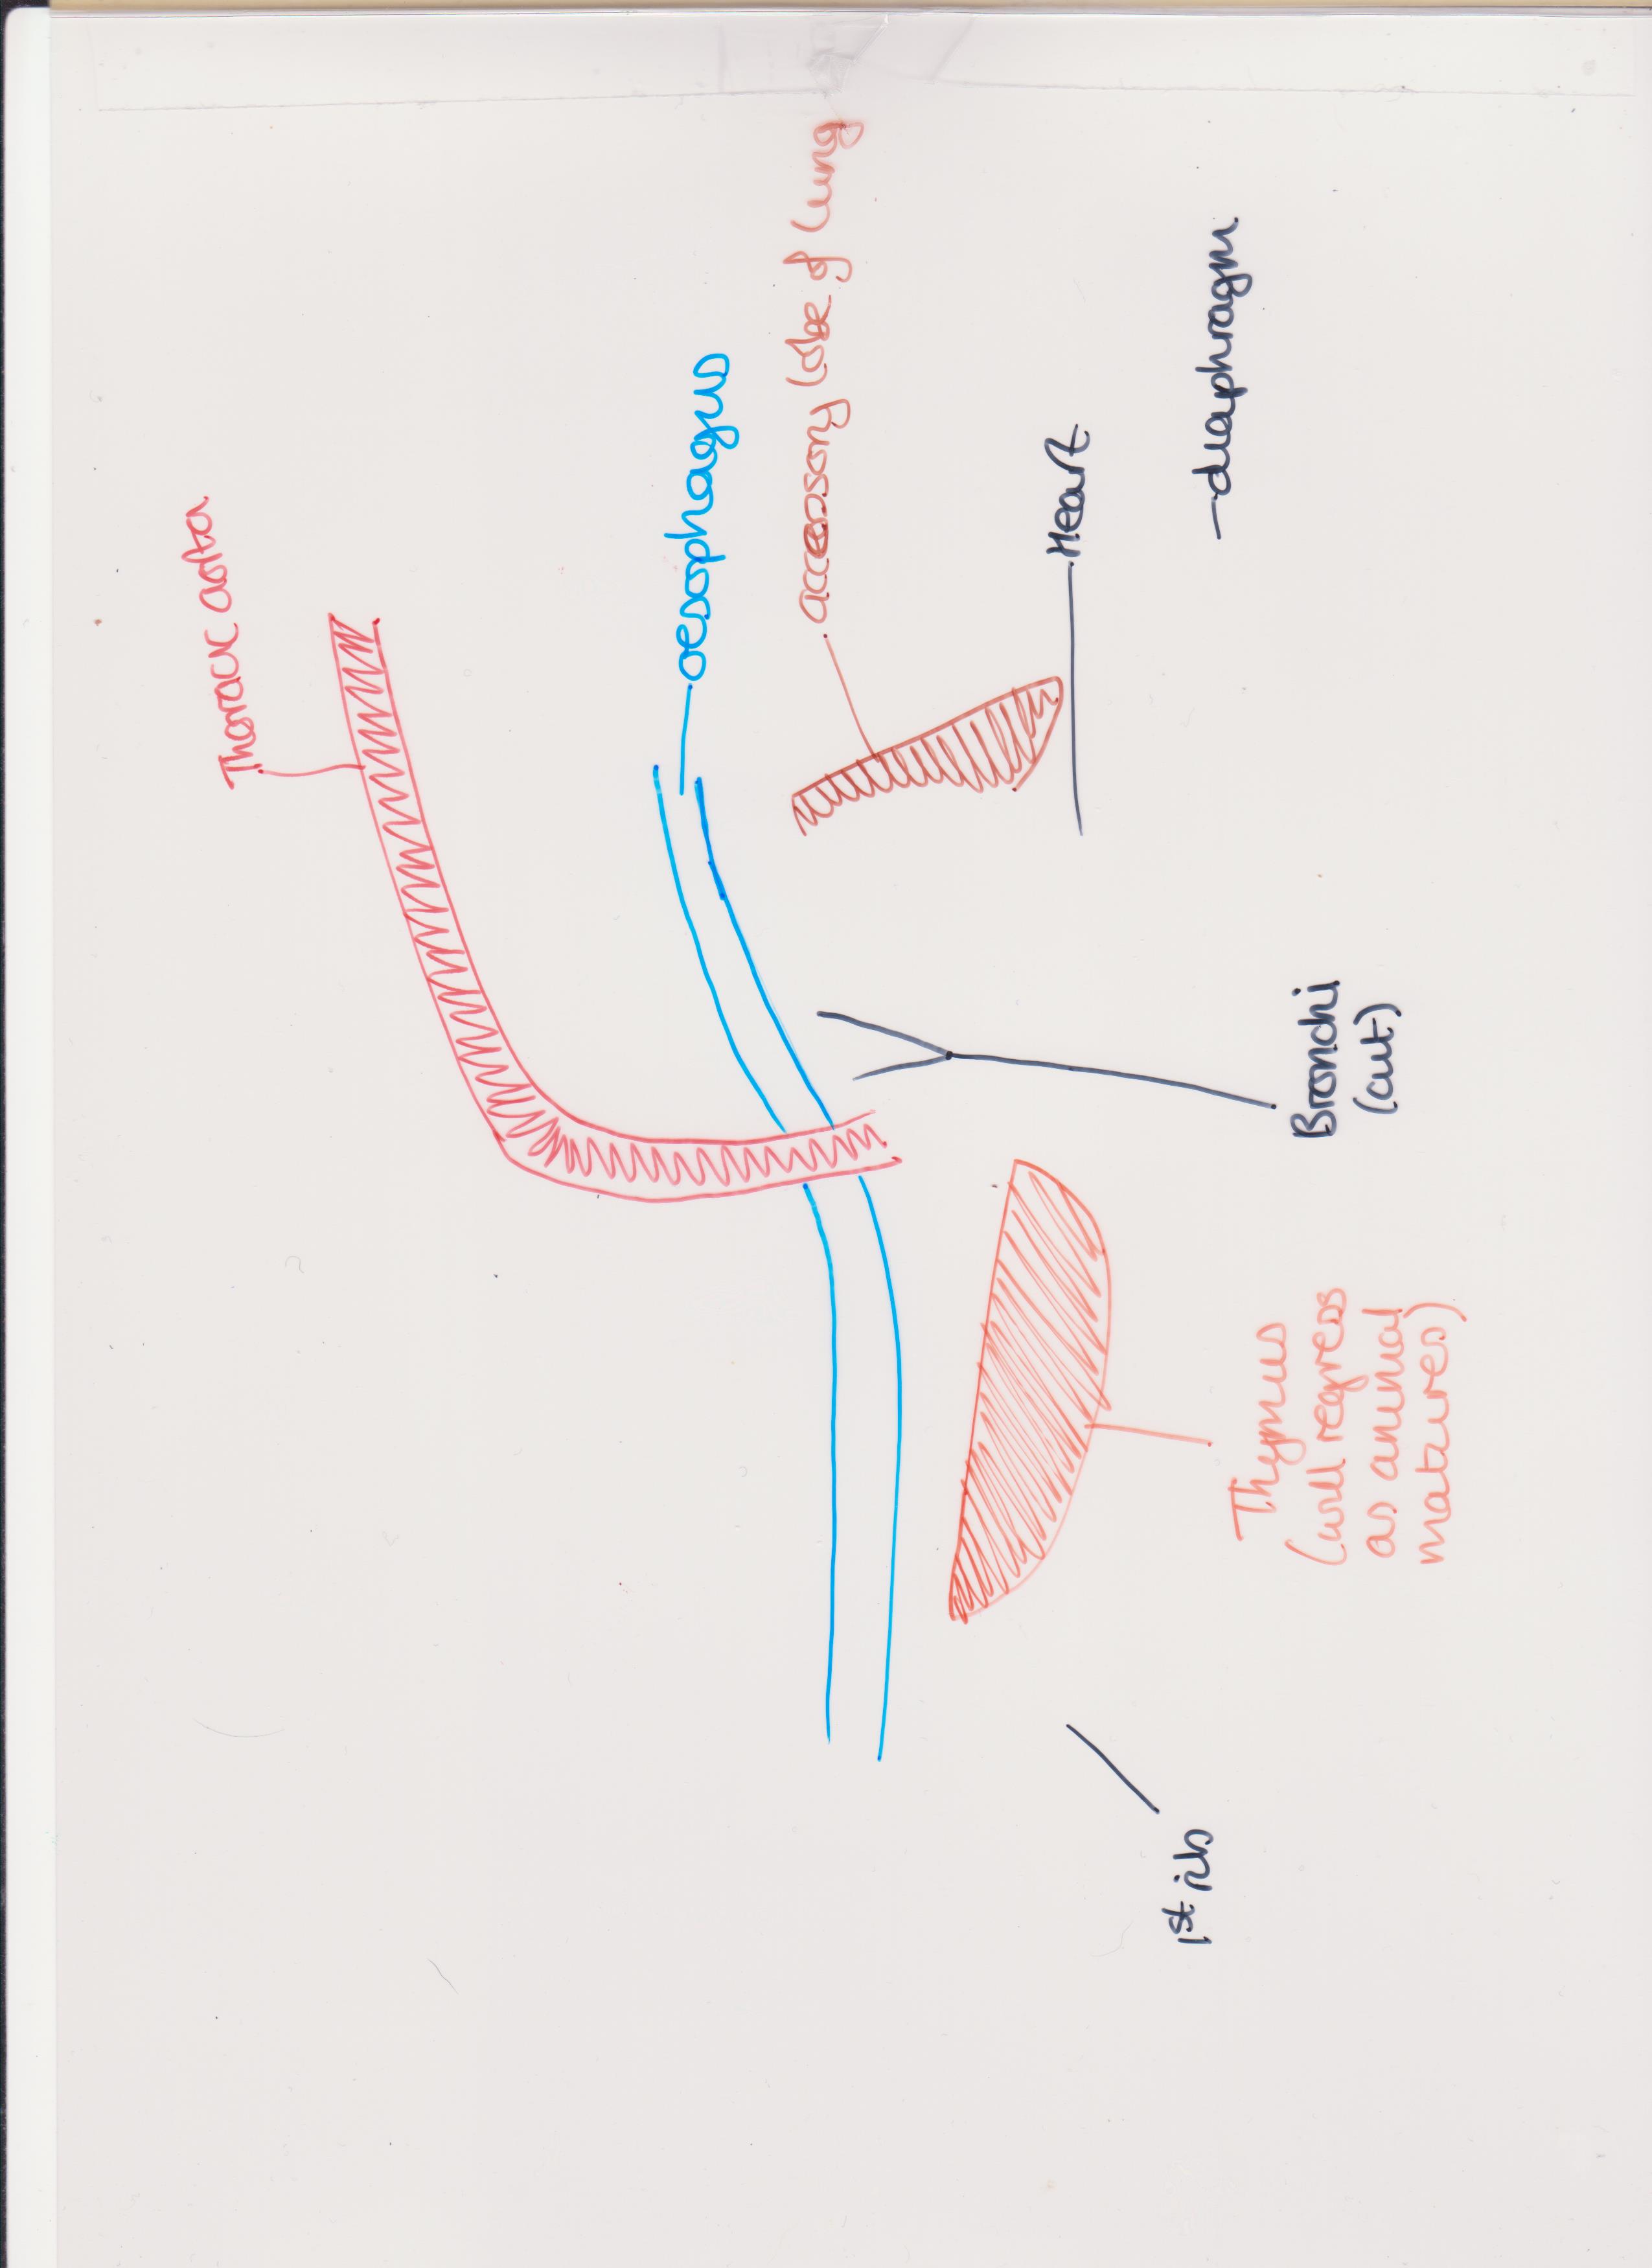 Thoracic aorta
oesophagus
accessory lobe of lung
Heart
diaphragm
Bronchi
(cut)
Thymus
(will regress
as animal
matures)
1st rib